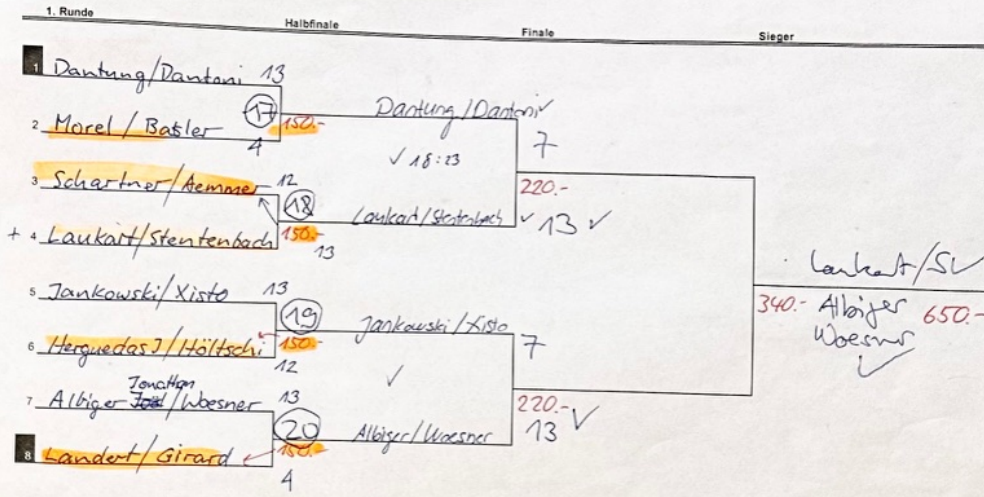 1. Runde Halbfinale Finale Sieger
1 Dantung/Dantoni 13
17
150.-
2 Morel / Basler
4
3 Schartner/Aemmer 12
18
150.-
+ 4 Laukart/Stentenbach
13
5 Jankowski/Xisto 13
19
150.-
6 Herguedas J/Höltschi
12
Jonathan
7 Albiger /Woesner 13
20
150.-
8 Landert/Girard
4
Dantung/Dantoni ✓
7
✓ 18:23
220.-
Laukart/Stentenbach ✓ 13 ✓
Jankowski/Xisto
7
✓
220.- ✓
Albiger/Woesner 13
Laukart/
340.- Albiger 650.-
Woesner
✓